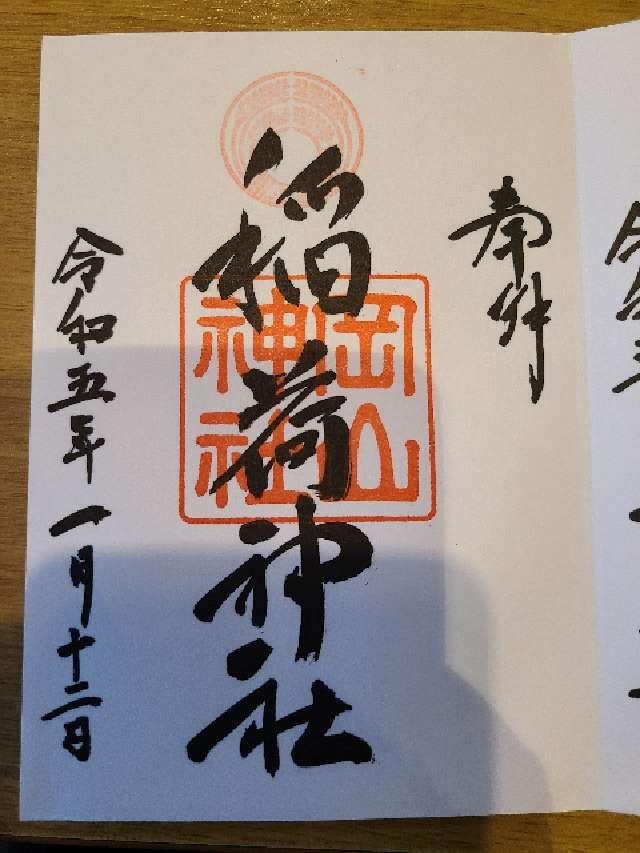 奉拝
稲荷神社
岡山
神社
令和五年一月十二日